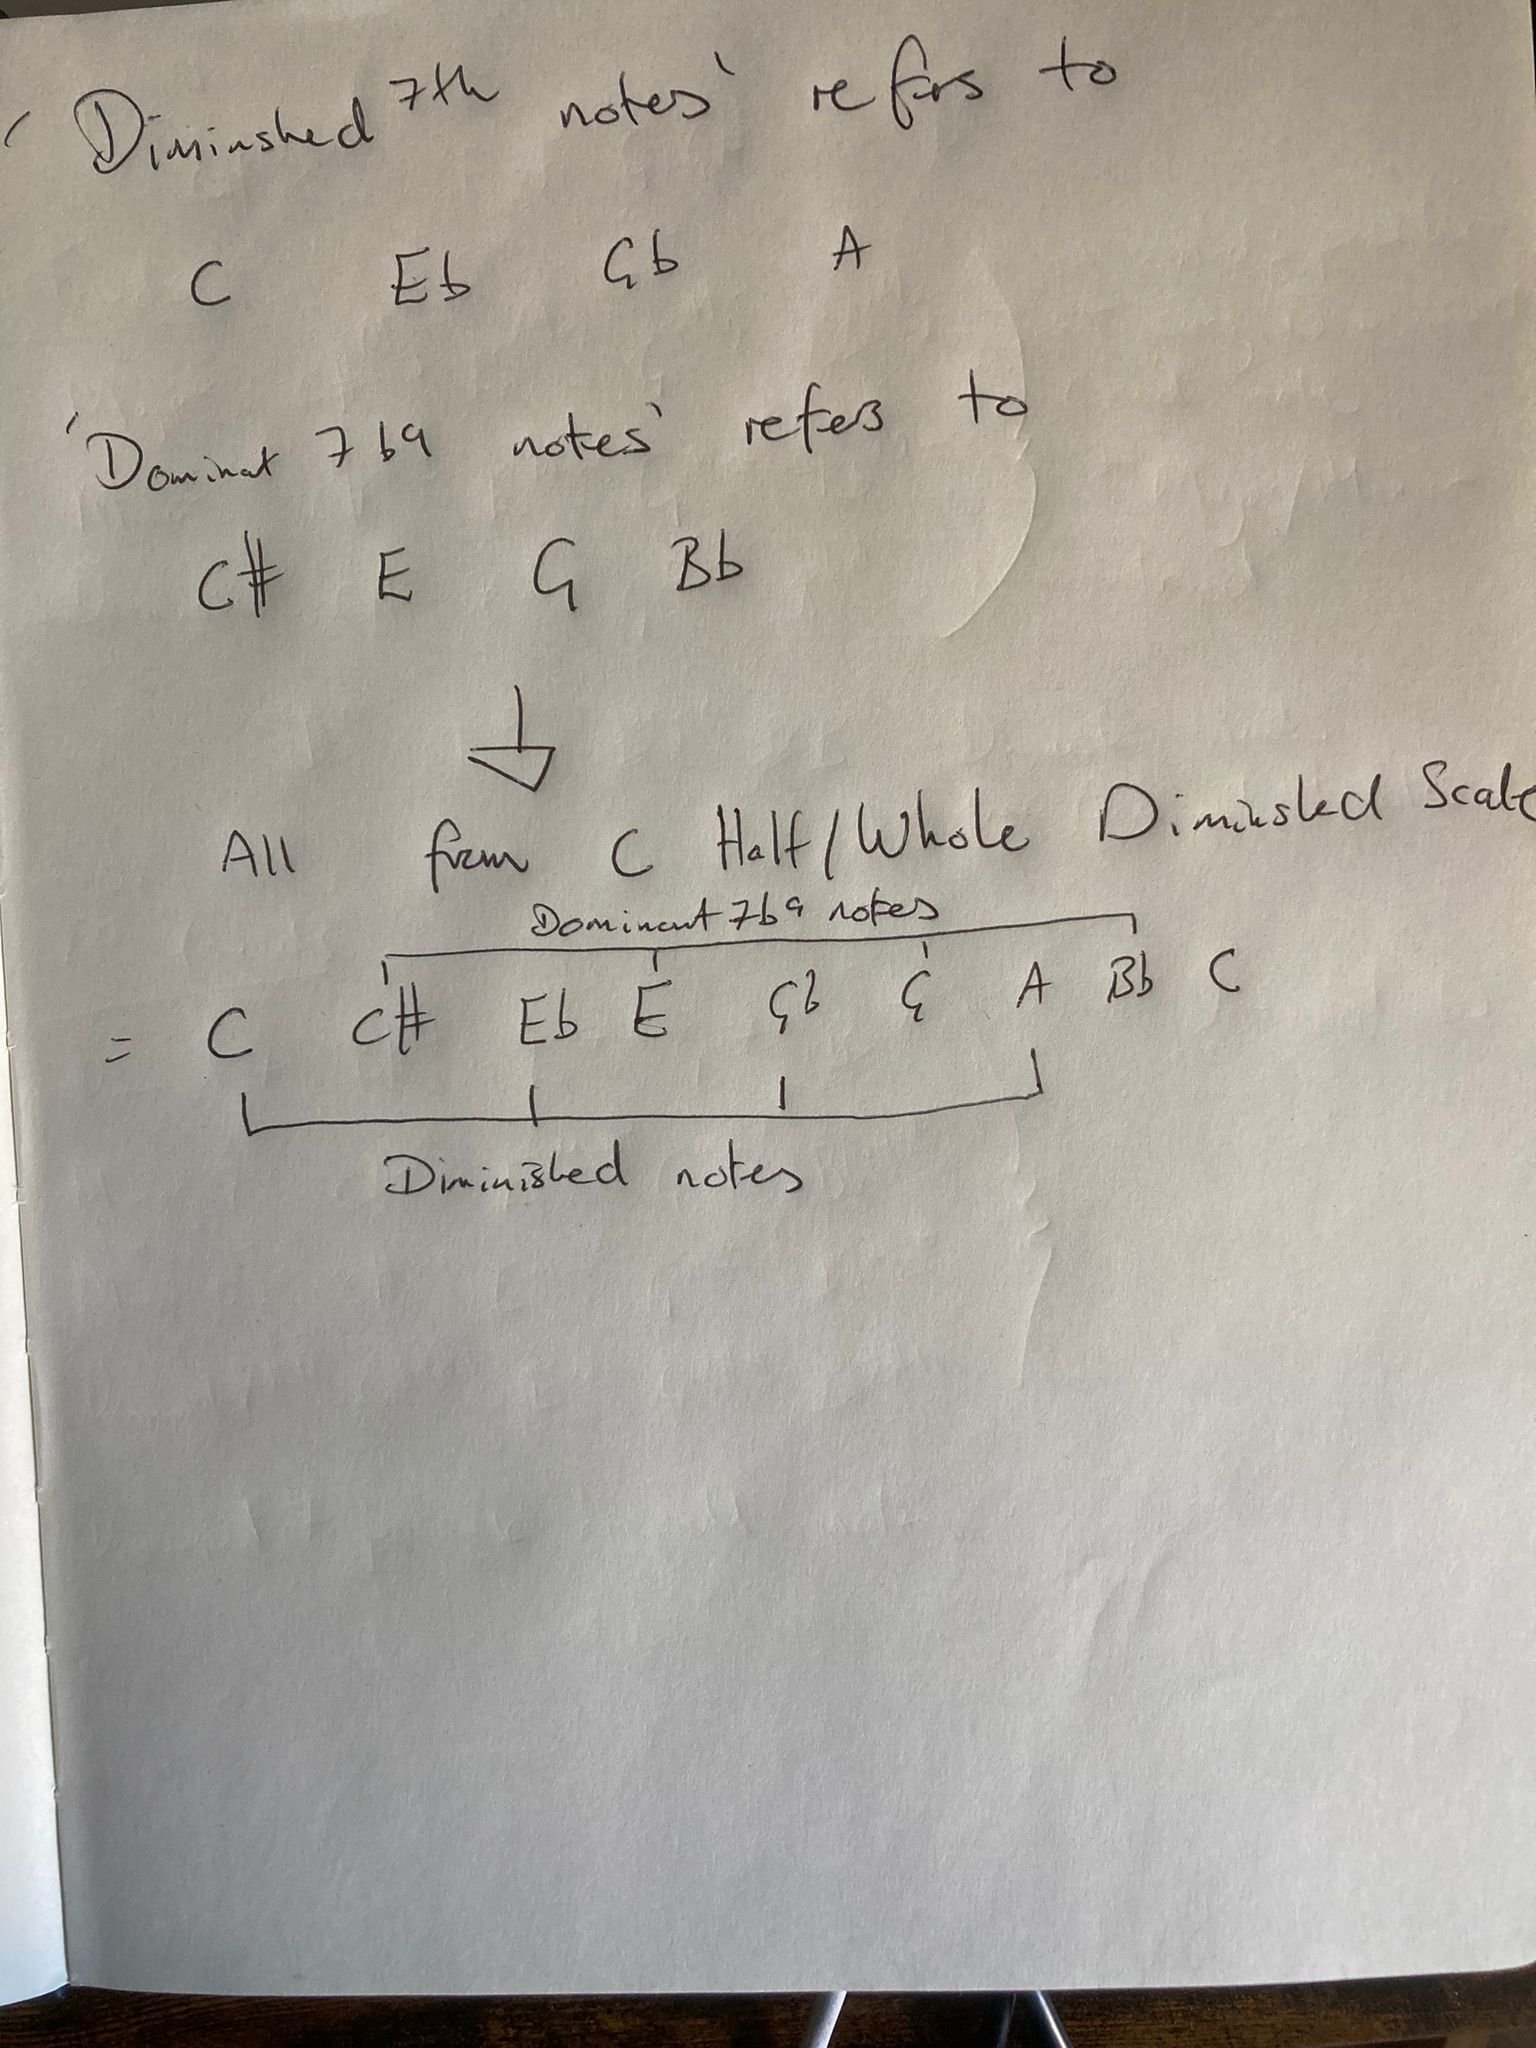 'Diminshed 7th notes' refers to
C Eb Gb A
'Dominat 7b9 notes' refers to
C# E G Bb
All from C Half/Whole Diminished Scale
Dominant 7b9 notes
= C C# Eb E Gb G A Bb C
Diminished notes